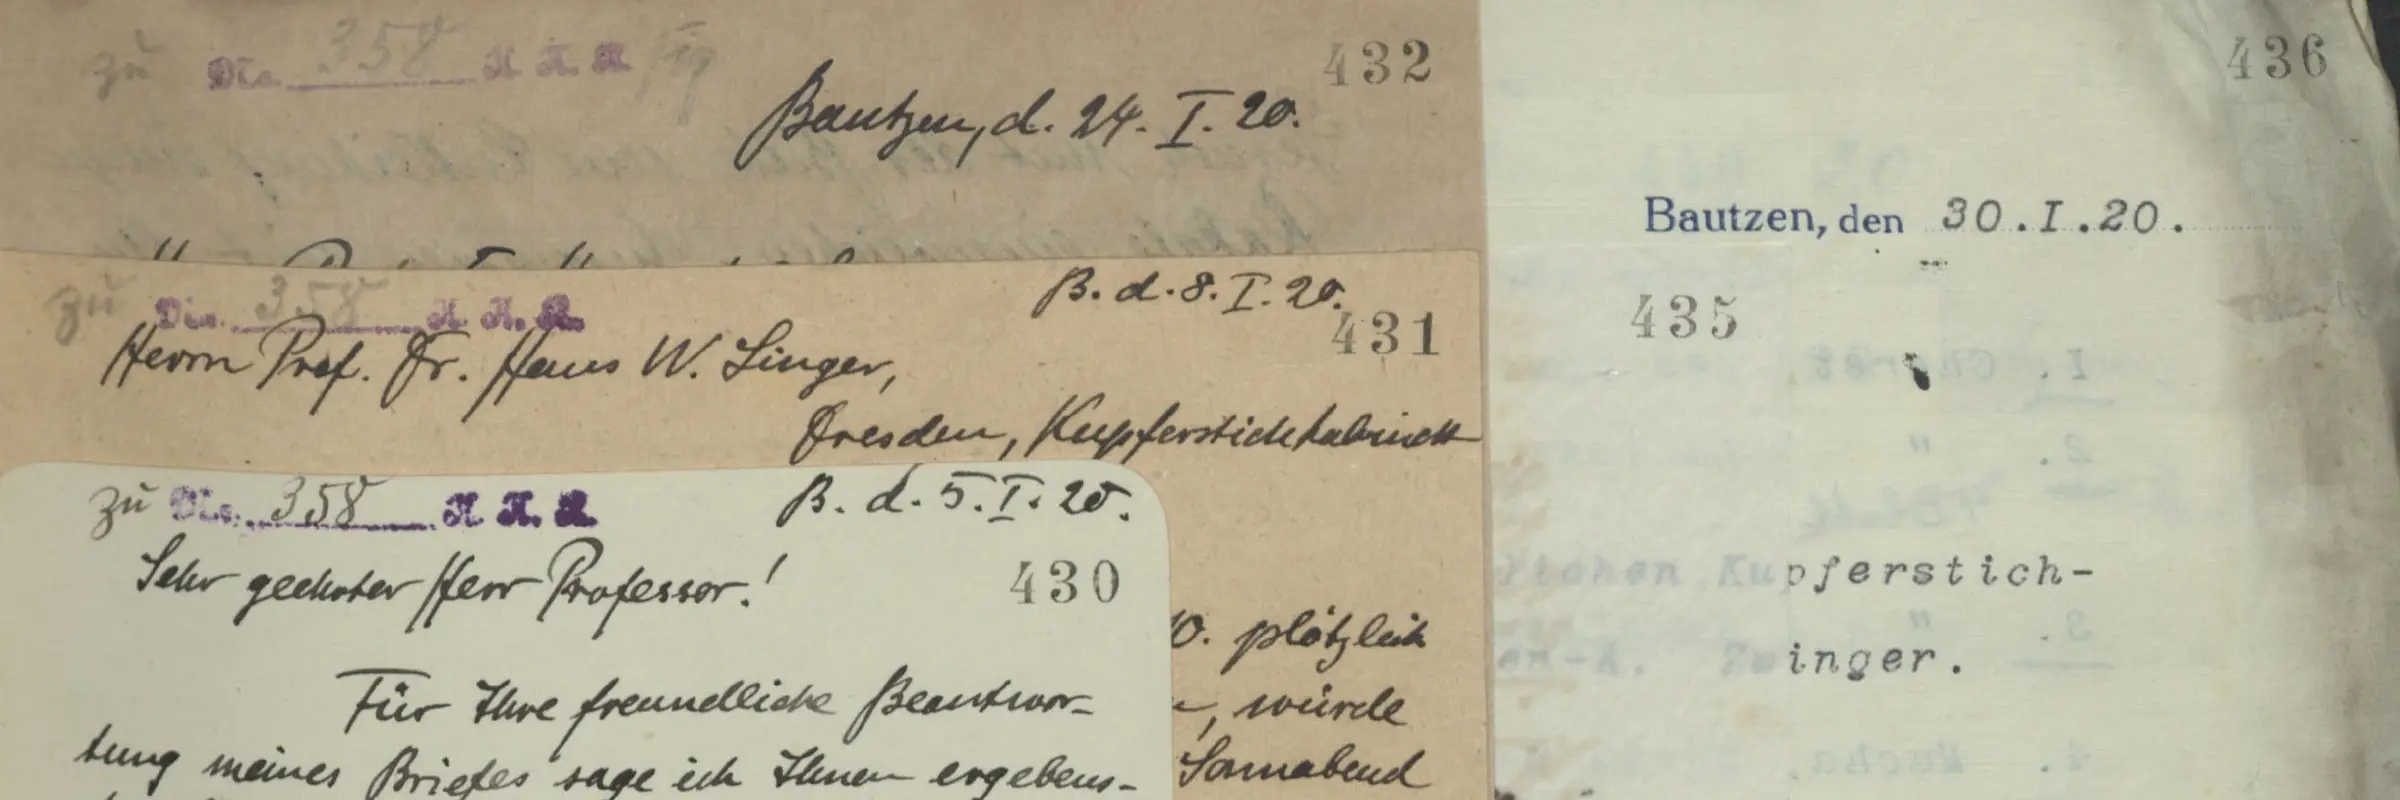 zu No. 358 K K K 19
432
Bautzen, d. 24. I. 20.
zu No. 358 K. K. K.
B. d. 8. I. 20.
431
Herrn Prof. Dr. Hans W. Singer,
Dresden, Kupferstichkabinett
zu No. 358 K K. K
B. d. 5. I. 20.
Sehr geehrter Herr Professor!
430
Für Ihre freundliche Beantwor-
tung meines Briefes sage ich Ihnen ergebens-
10. plötzlich
, würde
Sonnabend
436
Bautzen, den 30.I.20.
435
1. Cheret,
2. "
lichen Kupferstich-
3. "
en-A. Zwinger.
4. Mucha,